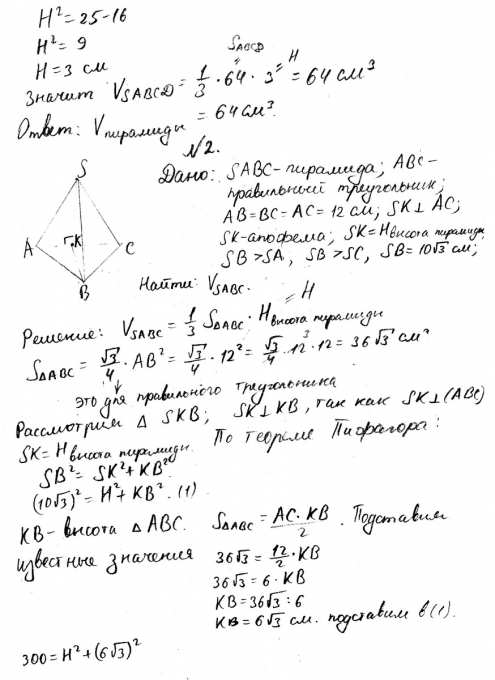 H² = 25-16
H² = 9
H = 3 см
S_ABCD
Значит V_SABCD = 1/3 · 64 · 3 = H = 64 см³
Ответ: V_пирамиды = 64 см³.
№2.
S
A
г,K
C
B
Дано: SABC - пирамида; ABC -
правильный треугольник;
AB = BC = AC = 12 см; SK ⊥ AC;
SK - апофема; SK = H высота пирамиды,
SB > SA, SB > SC, SB = 10√3 см;
Найти: V_SABC.
Решение: V_SABC = 1/3 S_ΔABC · H высота пирамиды = H
S_ΔABC = √3/4 · AB² = √3/4 · 12² = √3/4 · 12 · 12 = 36√3 см²
3
это для правильного треугольника
Рассмотрим Δ SKB; SK ⊥ KB, так как SK ⊥ (ABC)
SK = H высота пирамиды. По теореме Пифагора:
SB² = SK² + KB²
(10√3)² = H² + KB². (1)
KB - высота Δ ABC. S_ΔABC = AC · KB / 2. Подставим
известные значения
36√3 = 12/2 · KB
36√3 = 6 · KB
KB = 36√3 : 6
KB = 6√3 см. подставим в (1).
300 = H² + (6√3)²